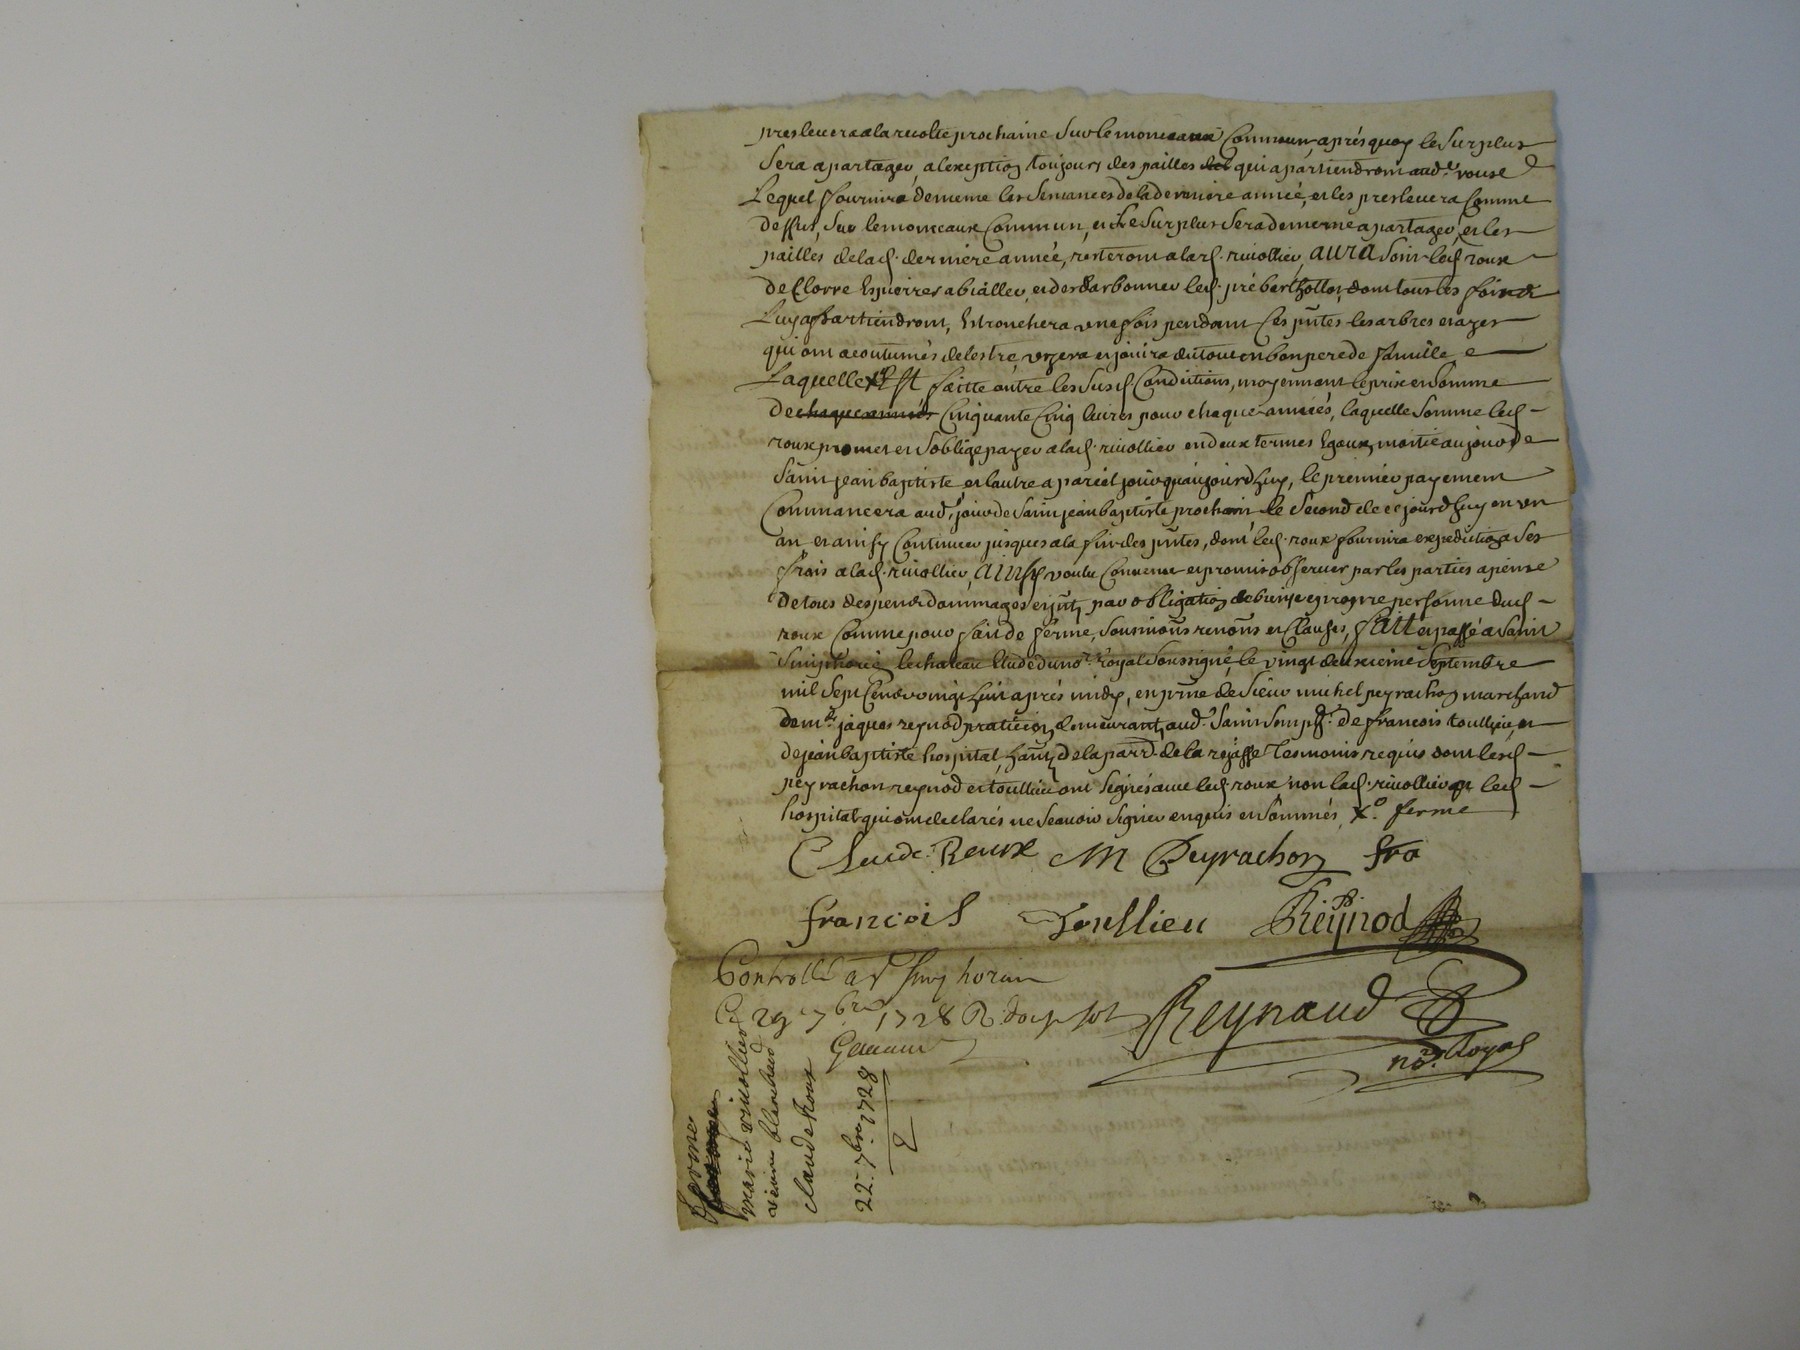 preslevera a la recolte prochaine sur le monceaux commun, aprés quoy le surplus
sera a partager, a lexeption toujours des pailles qui apartiendront aud.t roux
Lequel fournira de meme les semances de la derniere année, et les preslevera comme
dessus, sur le monceaux commun, et le surplus sera de meme a partager, et les
pailles de lad. derniére année, resteront a lad. rivollier, aura soin led. roux
de clorre led. pré dont tous les foins
Luy apartiendront, une fois pendant les pntes les arbres
qui ont acoutumés de lestre, uzera et jouira du tout en bon pere de famille
Laquelle x.o est faitte outre les susd. conditions, moyennant le prix et somme
de chaque année cinquante cinq livres pour chaque années, laquelle somme led.
roux promet et soblige payer a lad. rivollier en deux termes Egaux, moitié au jour de
saint jean baptiste, et lautre a pareil jour quaujourdhuy, le premier payement
commancera aud. jour de saint jean baptiste prochain le second de ce jourdhuy en un
an et ainsy continuer jusques a la fin des pntes, dont led. roux fournira expedition a ses
frais a lad. rivollier, ainsy voulu convenu et promis observer par les parties a peine
de tous despens dommages et jnts, par obligation de biens et propre personne dud.
roux comme pour fait de ferme, soumions renons et clauses, fait et passé a saint
simphorien le chateau Etude du no.re royal soussigné, le vingt deuxieme septembre
mil sept cens vingt huit aprés midy, en pnce de sieur michel peyrachon marchand
de m.e jaques reynod praticien demeurant aud. saint simph.n de francois toullieu, et
de jean baptiste hospital, hant de la parr. de la rajasse tesmoins requis dont lesd.
peyrachon reynod et toullieu ont signés avec led. roux non lad. rivollier et led.
hospital qui ont declarés ne scavoir signer enquis et sommés x.o ferme
Claude Roux M Peyrachon fra
francois toullieu Reynod
Controllé a St Simphorien
Ce 29 7bre 1728 R.
Reynaud
no.re Royal
ferme
marie rivollier
claude Roux
22.e 7bre 1728